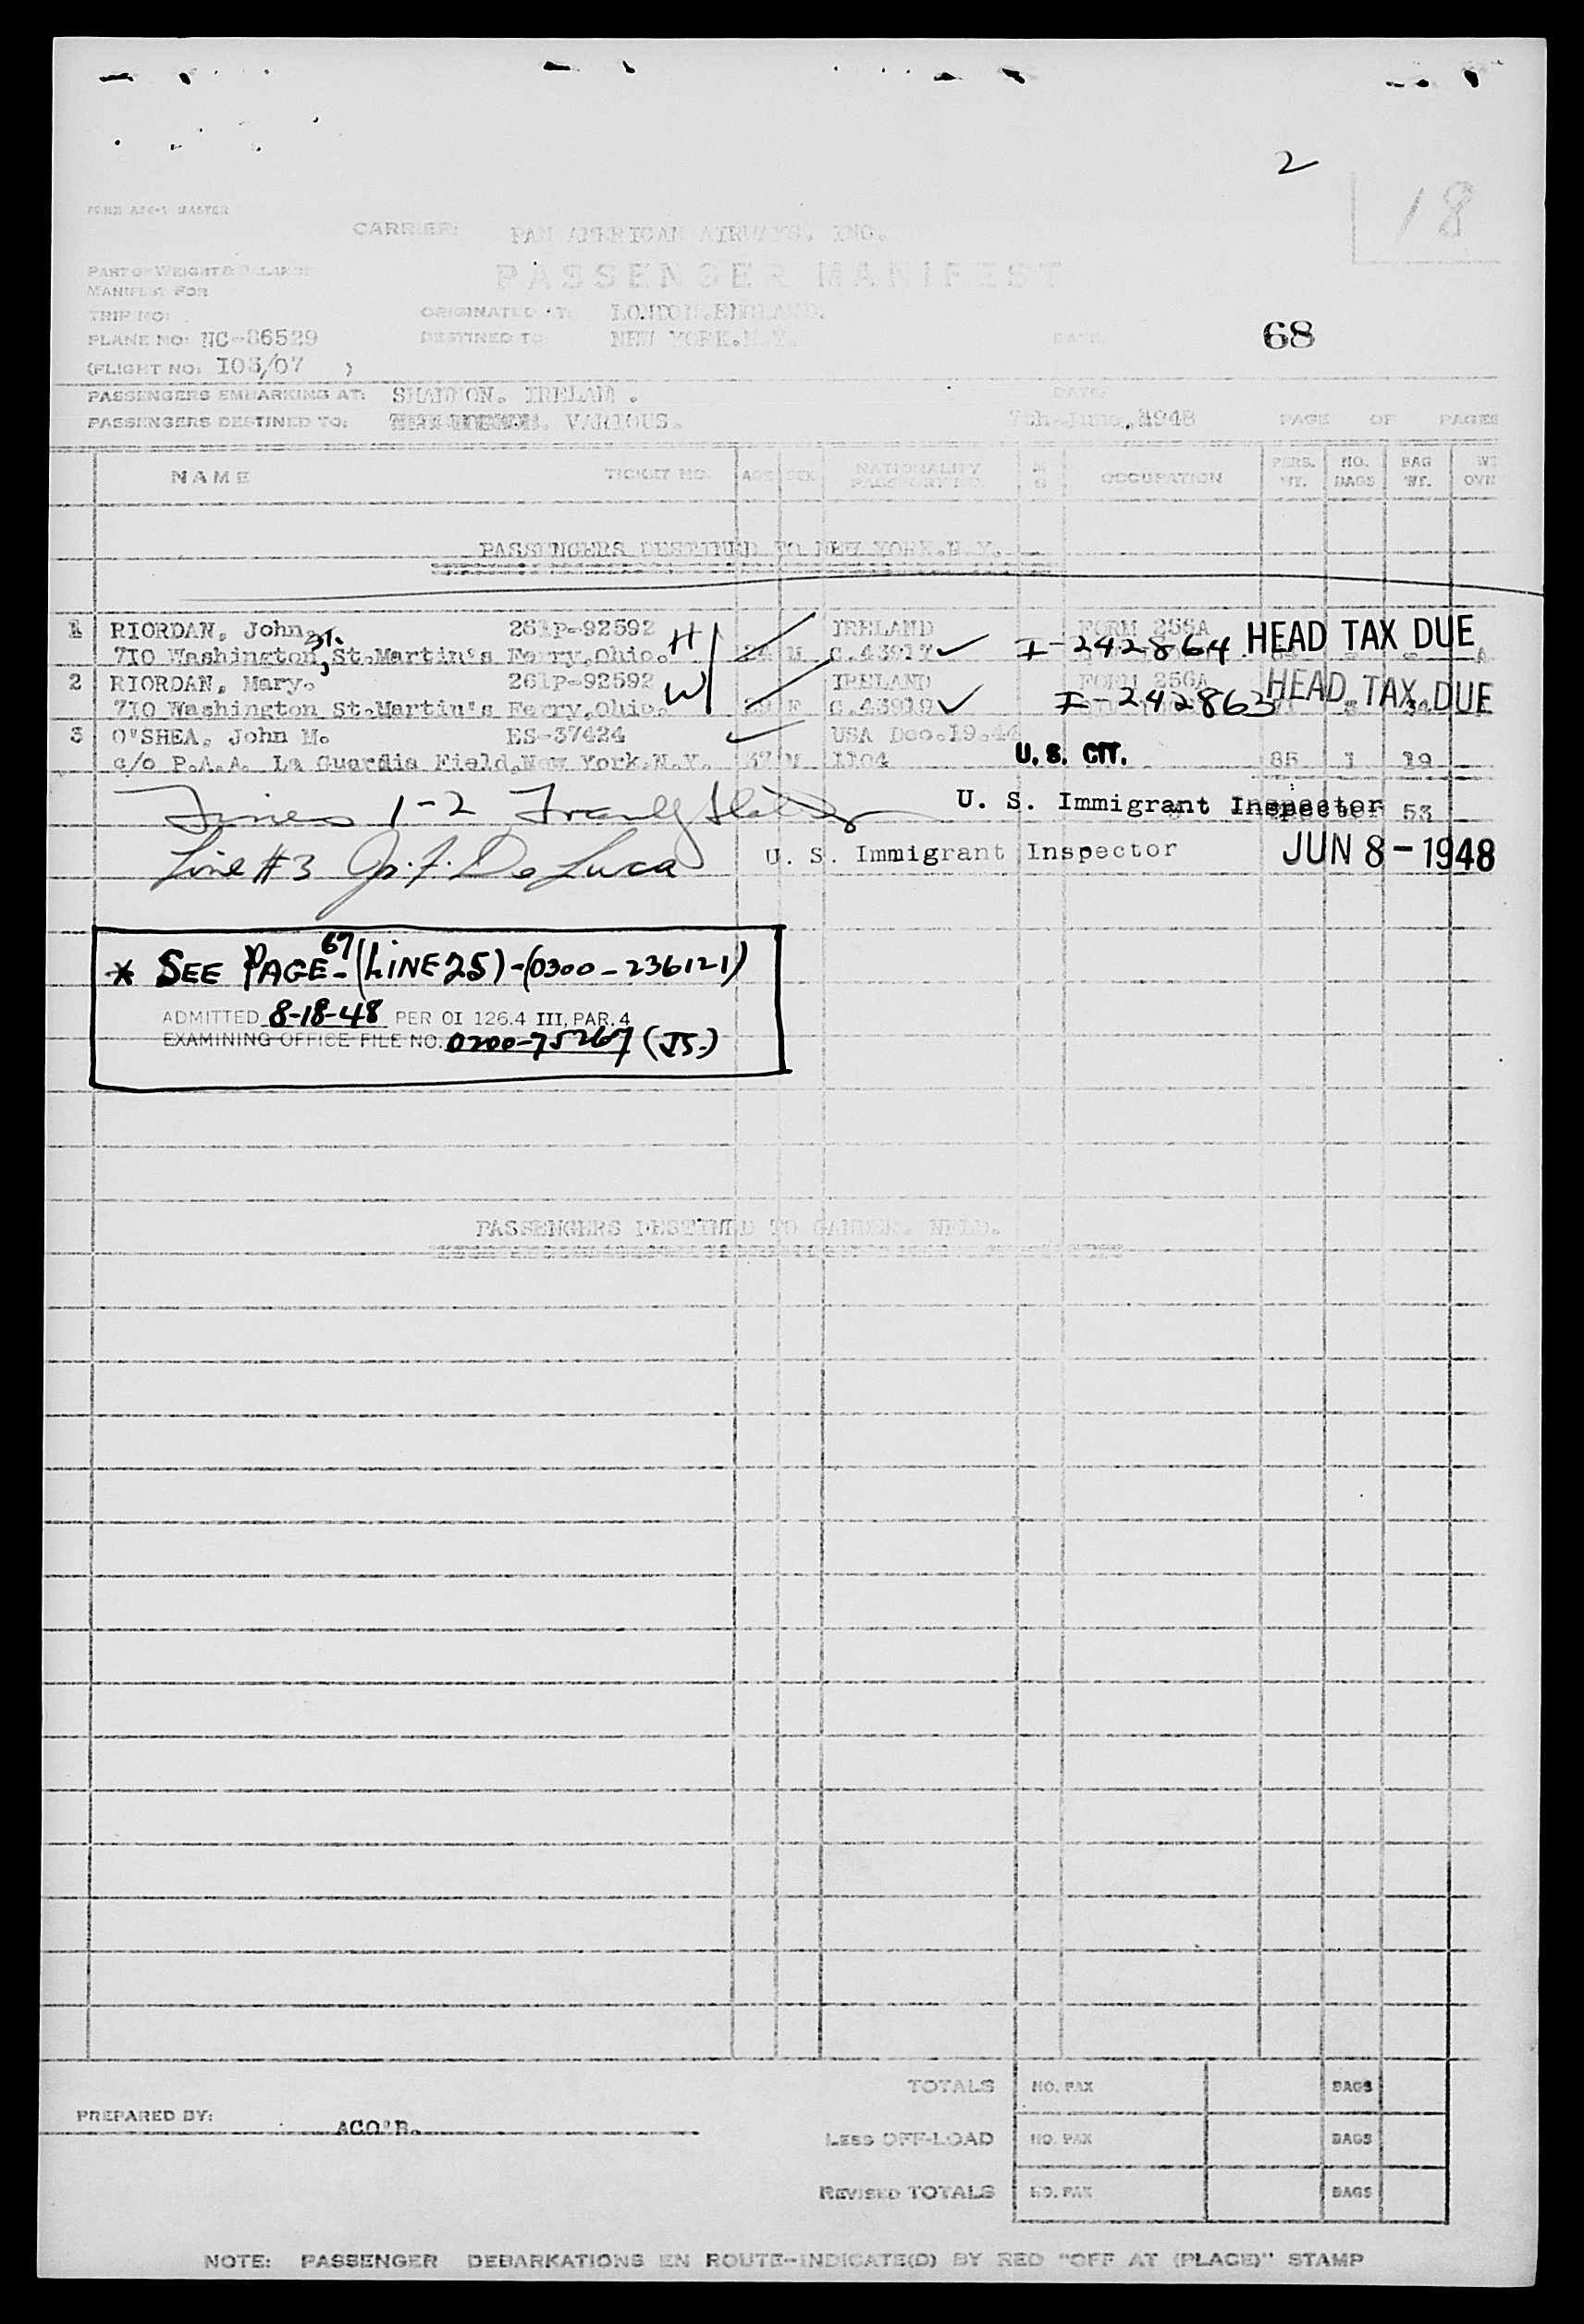 2
18
FORM AFC-1 MASTER
CARRIER: PAN AMERICAN AIRWAYS, INC.
PART OF WEIGHT & BALANCE
PASSENGER MANIFEST
MANIFEST FOR
TRIP NO:
ORIGINATED AT: LONDON.ENGLAND.
PLANE NO: NC-86529
DESTINED TO: NEW YORK.N.Y.
DATE:
68
(FLIGHT NO: I03/07 )
PASSENGERS EMBARKING AT: SHANNON. IRELAN .
DATE:
PASSENGERS DESTINED TO: VARIOUS.
7th June, 1948
PAGE OF PAGES
NAME TICKET NO. AGE SEX NATIONALITY PASSPORT NO. OCCUPATION PERS. WT. NO. BAGS BAG WT.
PASSENGERS DESTINED TO NEW YORK.N.Y.
1 RIORDAN, John. 261P-92592 H IRELAND FORM 256A
710 Washington St. St.Martin's Ferry,Ohio. M C.43917 I-242864 HEAD TAX DUE
2 RIORDAN, Mary. 261P-92592 W IRELAND FORM 256A
710 Washington St.Martin's Ferry,Ohio. F C.43919 I-242863 HEAD TAX DUE
3 O'SHEA, John M. ES-37424 USA Dec.19.44
c/o P.A.A. La Guardia Field,New York.N.Y. 37 M 1104 U.S. CIT. 85 1 19
Lines 1-2 U. S. Immigrant Inspector 53
Line #3 Jo. F. De Luca U. S. Immigrant Inspector JUN 8-1948
* SEE PAGE-67 (LINE 25)-(0300-236121)
ADMITTED 8-18-48 PER OI 126.4 III, PAR. 4
EXAMINING OFFICE FILE NO. 0200-75267 (JS.)
PASSENGERS DESTINED TO GANDER. NFLD.
TOTALS NO. PAX BAGS
PREPARED BY: ACO'B.
LESS OFF-LOAD NO. PAX BAGS
REVISED TOTALS NO. PAX BAGS
NOTE: PASSENGER DEBARKATIONS EN ROUTE-INDICATE(D) BY RED "OFF AT (PLACE)" STAMP